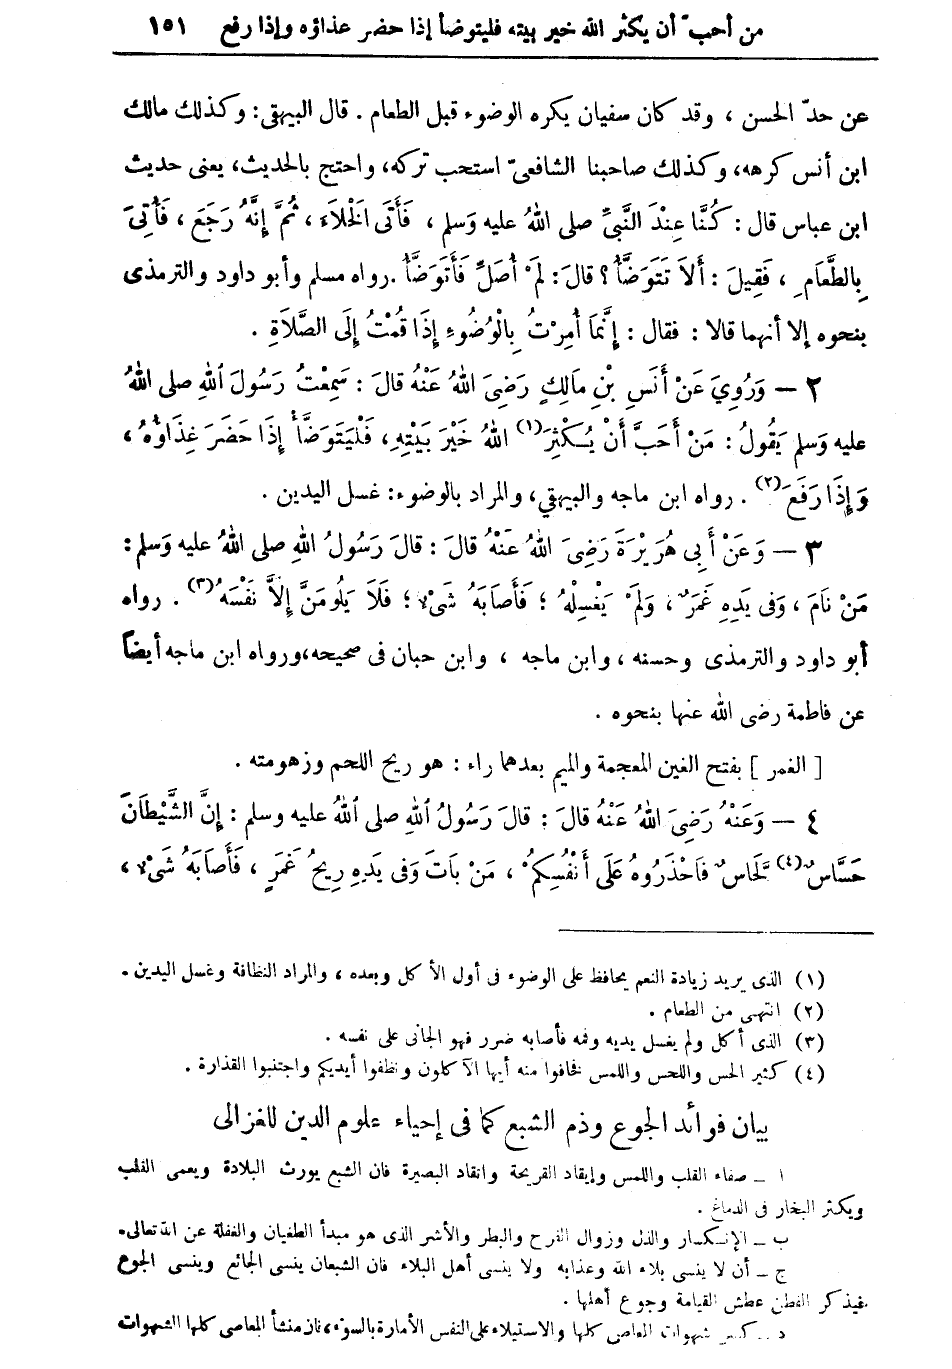 من أحبّ أن يكثر الله خير بيته فليتوضأ إذا حضر غذاؤه وإذا رفع ١٥١
عن حدّ الحسن ، وقد كان سفيان يكره الوضوء قبل الطعام . قال البيهقى : وكذلك مالك
ابن أنس كرهه ، وكذلك صاحبنا الشافعىّ استحب تركه ، واحتج بالحديث ، يعنى حديث
ابن عباس قال : كُنَّا عِنْدَ النَّبِيِّ صلى اللهُ عليه وَسلم ، فَأَتَى الْخَلاَءَ ، ثُمَّ إِنَّهُ رَجَعَ ، فَأُتِىَ
بِالطَّعَامِ ، فَقِيلَ : أَلاَ تَتَوَضَّأُ ؟ قالَ : لَمْ أُصَلِّ فَأَتَوَضَّأُ . رواه مسلم وأبو داود والترمذى
بنحوه إلا أنهما قالا : فقال : إِنَّمَا أُمِرْتُ بِالْوُضُوءِ إِذَا قُمْتُ إِلَى الصَّلاَةِ .
٢ — وَرُوِيَ عَنْ أَنَسِ بْنِ مَالِكٍ رَضِىَ اللهُ عَنْهُ قالَ : سَمِعْتُ رَسُولَ اللهِ صلى اللهُ
عليه وَسلم يَقُولُ : مَنْ أَحَبَّ أَنْ يُكْثِرَ (١) اللهُ خَيْرَ بَيْتِهِ ، فَلْيَتَوَضَّأْ إِذَا حَضَرَ غِذَاؤُهُ ،
وَإِذَا رَفَعَ (٢) . رواه ابن ماجه والبيهقي ، والمراد بالوضوء : غسل اليدين .
٣ — وَعَنْ أَبِى هُرَيْرَةَ رَضِىَ اللهُ عَنْهُ قالَ : قالَ رَسُولُ اللهِ صلى اللهُ عليه وَسلم :
مَنْ نَامَ ، وَفِى يَدِهِ غَمَرٌ ، وَلَمْ يَغْسِلْهُ ؛ فَأَصَابَهُ شَىْءٌ ؛ فَلاَ يَلُومَنَّ إِلاَّ نَفْسَهُ (٣) . رواه
أبو داود والترمذى وحسنه ، وابن ماجه ، وابن حبان فى صحيحه ، ورواه ابن ماجه أيضاً
عن فاطمة رضى الله عنها بنحوه .
[ الغمر ] بفتح الغين المعجمة والميم بعدهما راء : هو ريح اللحم وزهومته .
٤ — وَعَنْهُ رَضِىَ اللهُ عَنْهُ قالَ : قالَ رَسُولُ اللهِ صلى اللهُ عليه وسلم : إِنَّ الشَّيْطَانَ
حَسَّاسٌ (٤) لَحَّاسٌ فَاحْذَرُوهُ عَلَى أَنْفُسِكُمْ ، مَنْ بَاتَ وَفِى يَدِهِ رِيحُ غَمَرٍ ، فَأَصَابَهُ شَىْءٌ ،
(١) الذى يريد زيادة النعم يحافظ على الوضوء فى أول الأكل وبعده ، والمراد النظافة وغسل اليدين .
(٢) انتهى من الطعام .
(٣) الذى أكل ولم يغسل يديه وفمه فأصابه ضرر فهو الجانى على نفسه .
(٤) كثير الحس واللحس واللمس فخافوا منه أيها الآكلون ونظفوا أيديكم واجتنبوا القذارة .
بيان فوائد الجوع وذم الشبع كما فى إحياء علوم الدين للغزالى
ا — صفاء القلب واللمس وإيقاد القريحة وانقاد البصيرة فان الشبع يورث البلادة ويعمى القلب
ويكثر البخار فى الدماغ .
ب — الإنكسار والذل وزوال الفرح والبطر والأشر الذى هو مبدأ الطغيان والغفلة عن الله تعالى .
ج — أن لا ينسى بلاء الله وعذابه ولا ينسى أهل البلاء فان الشبعان ينسى الجائع وينسى الجوع
فيذكر الفطن عطش القيامة وجوع أهلها .
د — كسر شهوات المعاصى كلها والاستيلاء على النفس الأمارة بالسوء ، فان منشأ المعاصى كلها الشهوات